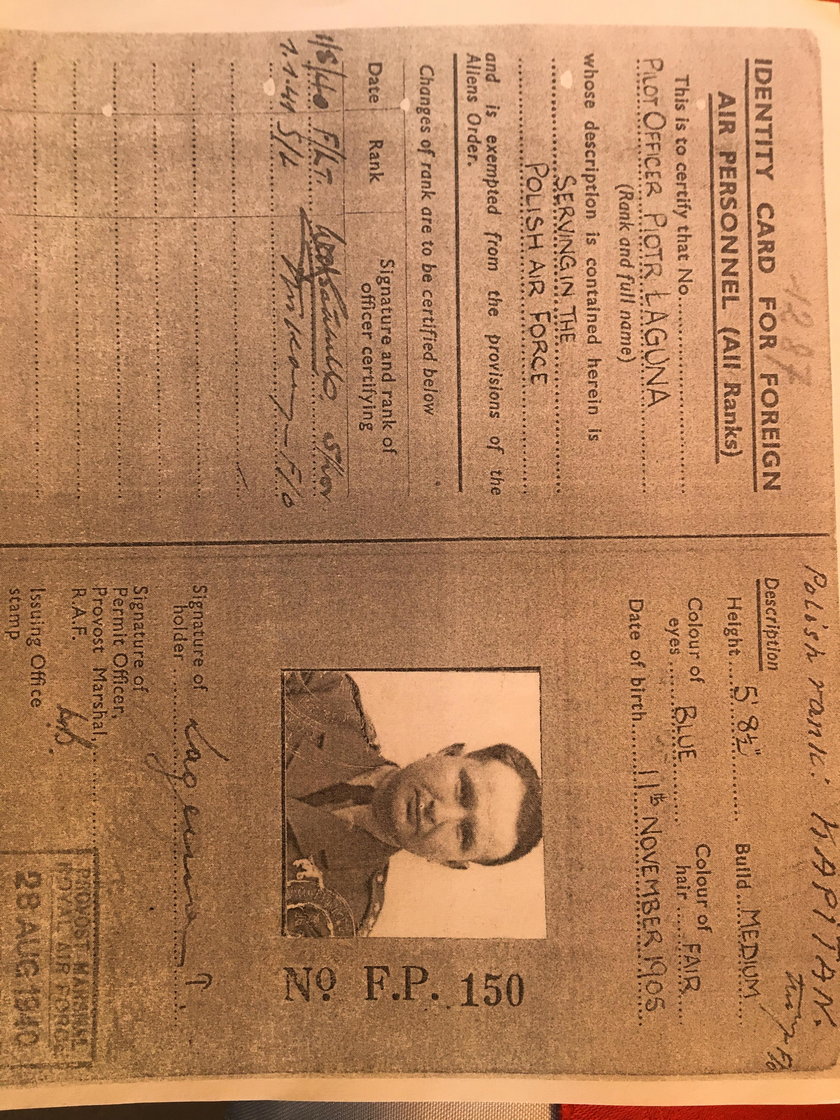 4287
IDENTITY CARD FOR FOREIGN
AIR PERSONNEL (All Ranks)
This is to certify that No.
PILOT OFFICER PIOTR LAGUNA
(Rank and full name)
whose description is contained herein is
SERVING IN THE
POLISH AIR FORCE
and is exempted from the provisions of the
Aliens Order.
Changes of rank are to be certified below
Date Rank Signature and rank of
officer certifying
1/8/40 F/LT.
1.1.41 S/L F/O
Polish rank: KAPITAN.
F/O
Description
Height 5' 8½" Build MEDIUM
Colour of eyes BLUE Colour of hair FAIR
Date of birth 11th NOVEMBER 1905
No F.P. 150
Signature of
holder Laguna P.
Signature of
Permit Officer,
Provost Marshal,
R.A.F.
Issuing Office
stamp
PROVOST MARSHAL
ROYAL AIR FORCE
28 AUG 1940